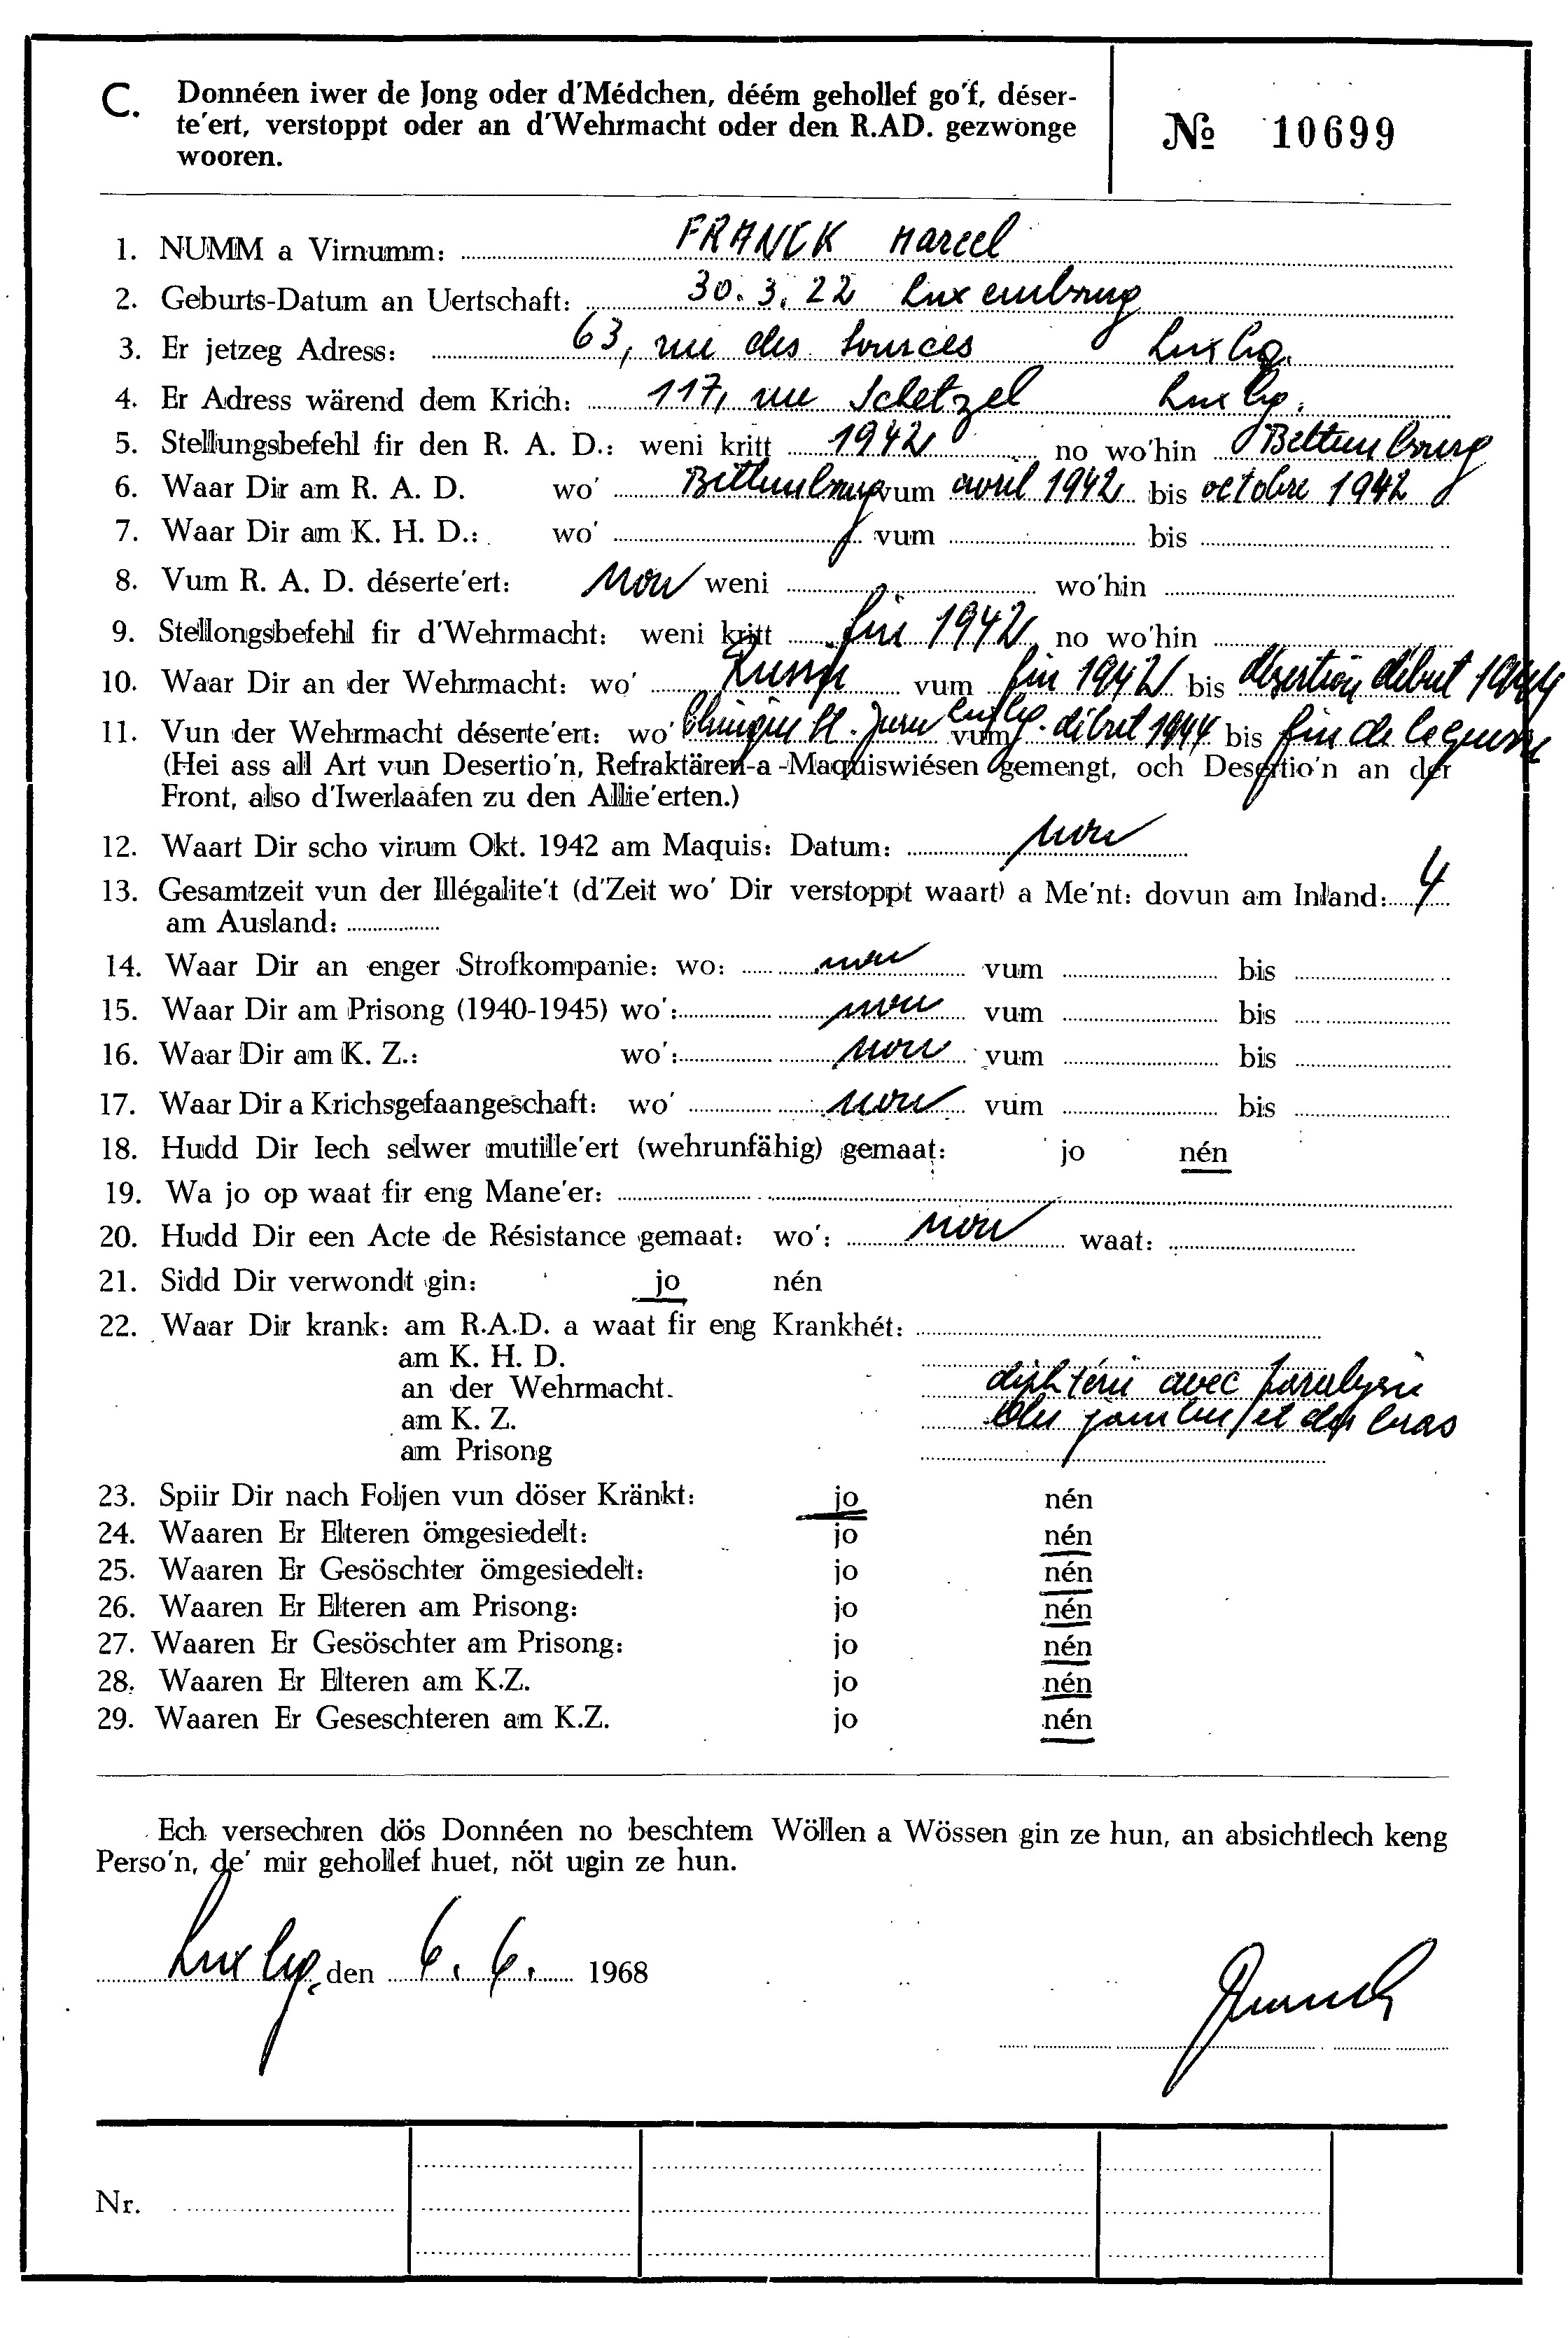 C. Donnéen iwer de Jong oder d'Médchen, déém gehollef go'f, déser-
te'ert, verstoppt oder an d'Wehrmacht oder den R.AD. gezwonge
wooren.
№ 10699
1. NUMM a Virnumm: FRANCK Marcel
2. Geburts-Datum an Uertschaft: 30.3.22 Luxembourg
3. Er jetzeg Adress: 63, rue des Sources Luxbg.
4. Er Adress wärend dem Krich: 117, rue Schetzel Luxbg.
5. Stellungsbefehl fir den R. A. D.: weni kritt 1942 no wo'hin Bettembourg
6. Waar Dir am R. A. D. wo' Bettembourg vum avril 1942 bis octobre 1942
7. Waar Dir am K. H. D.: wo' vum bis
8. Vum R. A. D. déserte'ert: non weni wo'hin
9. Stellongsbefehl fir d'Wehrmacht: weni kritt fin 1942 no wo'hin
10. Waar Dir an der Wehrmacht: wo' Russie vum fin 1942 bis désertion début 1944
11. Vun der Wehrmacht déserte'ert: wo' Clinique St. Luxbg. vum début 1944 bis fin de la guerre
(Hei ass all Art vun Desertio'n, Refraktären-a-Maquiswiésen gemengt, och Desertio'n an der
Front, also d'Iwerlaafen zu den Allie'erten.)
12. Waart Dir scho virum Okt. 1942 am Maquis: Datum: non
13. Gesamtzeit vun der Illégalite't (d'Zeit wo' Dir verstoppt waart) a Me'nt: dovun am Inland: 4
am Ausland:
14. Waar Dir an enger Strofkompanie: wo: non vum bis
15. Waar Dir am Prisong (1940-1945) wo': non vum bis
16. Waar Dir am K. Z.: wo': non vum bis
17. Waar Dir a Krichsgefaangeschaft: wo' non vum bis
18. Hudd Dir Iech selwer mutille'ert (wehrunfähig) gemaat: jo nén
19. Wa jo op waat fir eng Mane'er:
20. Hudd Dir een Acte de Résistance gemaat: wo': non waat:
21. Sidd Dir verwondt gin: jo nén
22. Waar Dir krank: am R.A.D. a waat fir eng Krankhét:
am K. H. D.
an der Wehrmacht. diphtérie avec paralysie
am K. Z. des jambes et des bras
am Prisong
23. Spiir Dir nach Foljen vun döser Kränkt: jo nén
24. Waaren Er Elteren ömgesiedelt: jo nén
25. Waaren Er Gesöschter ömgesiedelt: jo nén
26. Waaren Er Elteren am Prisong: jo nén
27. Waaren Er Gesöschter am Prisong: jo nén
28. Waaren Er Elteren am K.Z. jo nén
29. Waaren Er Geseschteren am K.Z. jo nén
Ech versechren dös Donnéen no beschtem Wöllen a Wössen gin ze hun, an absichtlech keng
Perso'n, de' mir gehollef huet, nöt ugin ze hun.
Luxbg. den 6.6. 1968
Franck
Nr.